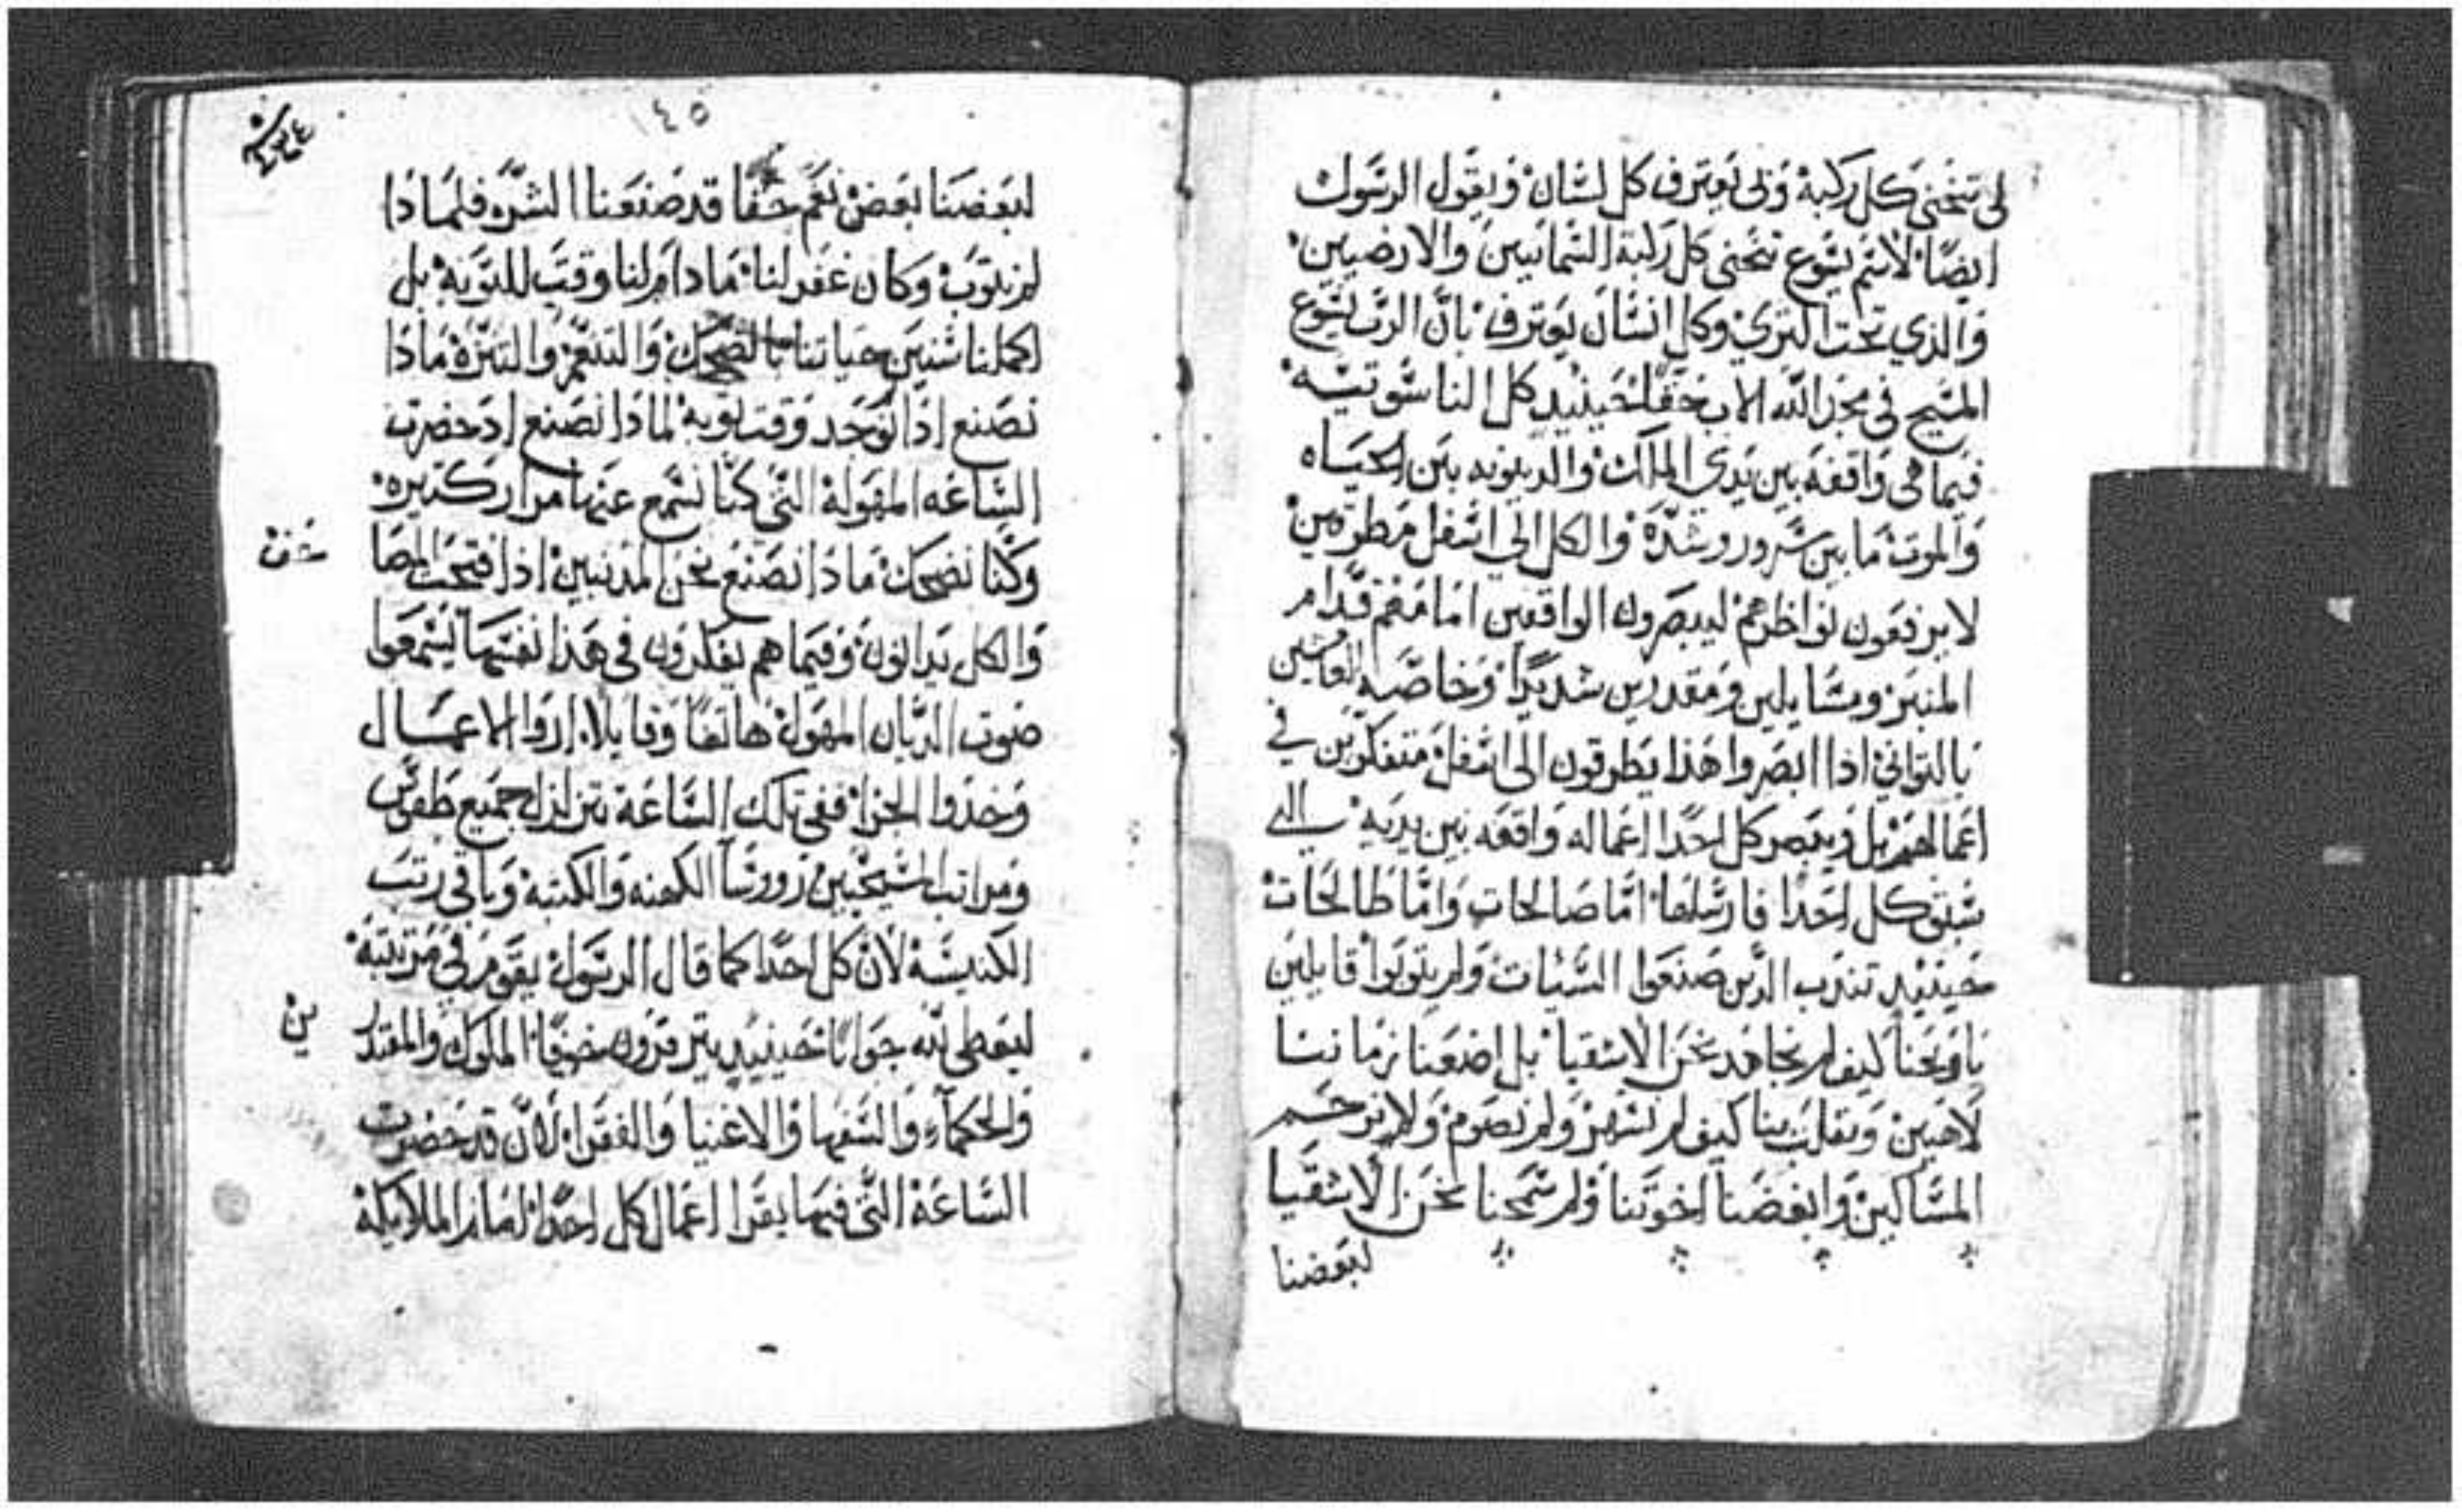 لي تنحني كل ركبة ولي يعترف كل لسان ويقول الرسول
ايضًا لاسم يسوع تنحني كل ركبة السمائيين والارضيين
والذي تحت الثري وكل انسان يعترف بان الرب يسوع
المسيح في مجد الله الاب حقًا حينيذٍ كل الناسوتيه
فيما هي واقفه بين يدي الملاك والدينونه بين الحياه
والموت ما بين سرور وشدة والكل الي اسفل مطرقين
لا يرفعون نواظرهم ليبصرون الواقفين امامهم قدام
المنبر ومسايلين ومقدرين شديدًا وخاصه العايشين
بالتواني اذا ابصروا هذا يطرقون الى اسفل متفكرين في
اعمالهم بل ويبصر كل احدًا اعماله واقفه بين يديه الي
سبق كل احدًا فارسلها اما صالحات واما طالحات
حينيذٍ تندب الذين صنعوا السيات ولم يتوبوا قايلين
ياويحنا كيف لم نجاهد نحن الاشقيا بل اضعنا زماننا
لاهيين وتقلبنا كيف لم نسهر ولم نصوم ولا نرحم
المساكين وابغضنا اخوتنا ولم سمحنا نحن الاشقيا
لبعضنا
١٤٥
لبعضنا بعض نعم حقًا قد صنعنا الشره فلماذا
لم نتوب وكان غفر لنا ما دام لنا وقت للتوبه بل
اكملنا سنين حياتنا بالضحك والتنعم والتنزه ماذا
نصنع اذا توجد وقت توبه لماذا نصنع اذ حضرت
الساعه المهولة التي كنا نسمع عنها مرار كثيره
وكنا نضحك ماذا نصنع نحن المذنبين اذا فتحت المصا
حف
والكل يدانون وفيما هم يفكرون في هذا نفسها يسمعوا
صوت الديان المهول هاتفًا وقايلا اروا الاعمال
وخذوا الجزا ففي تلك الساعة تتزلزل جميع طقوس
ومراتب المسيحيين وروسا الكهنه والكتبة وباقي رتب
الكنيسة لان كل احدًا كما قال الرسول يقوم في مرتبته
ليعطي لله جوابًا حينيذٍ يترقرون خوفًا الملوك والمقتدر
ين
والحكماء والسفها والاغنيا والفقرا لان قد حضرت
الساعة التي فيها يقرا اعمال كل احدًا امام الملايكة